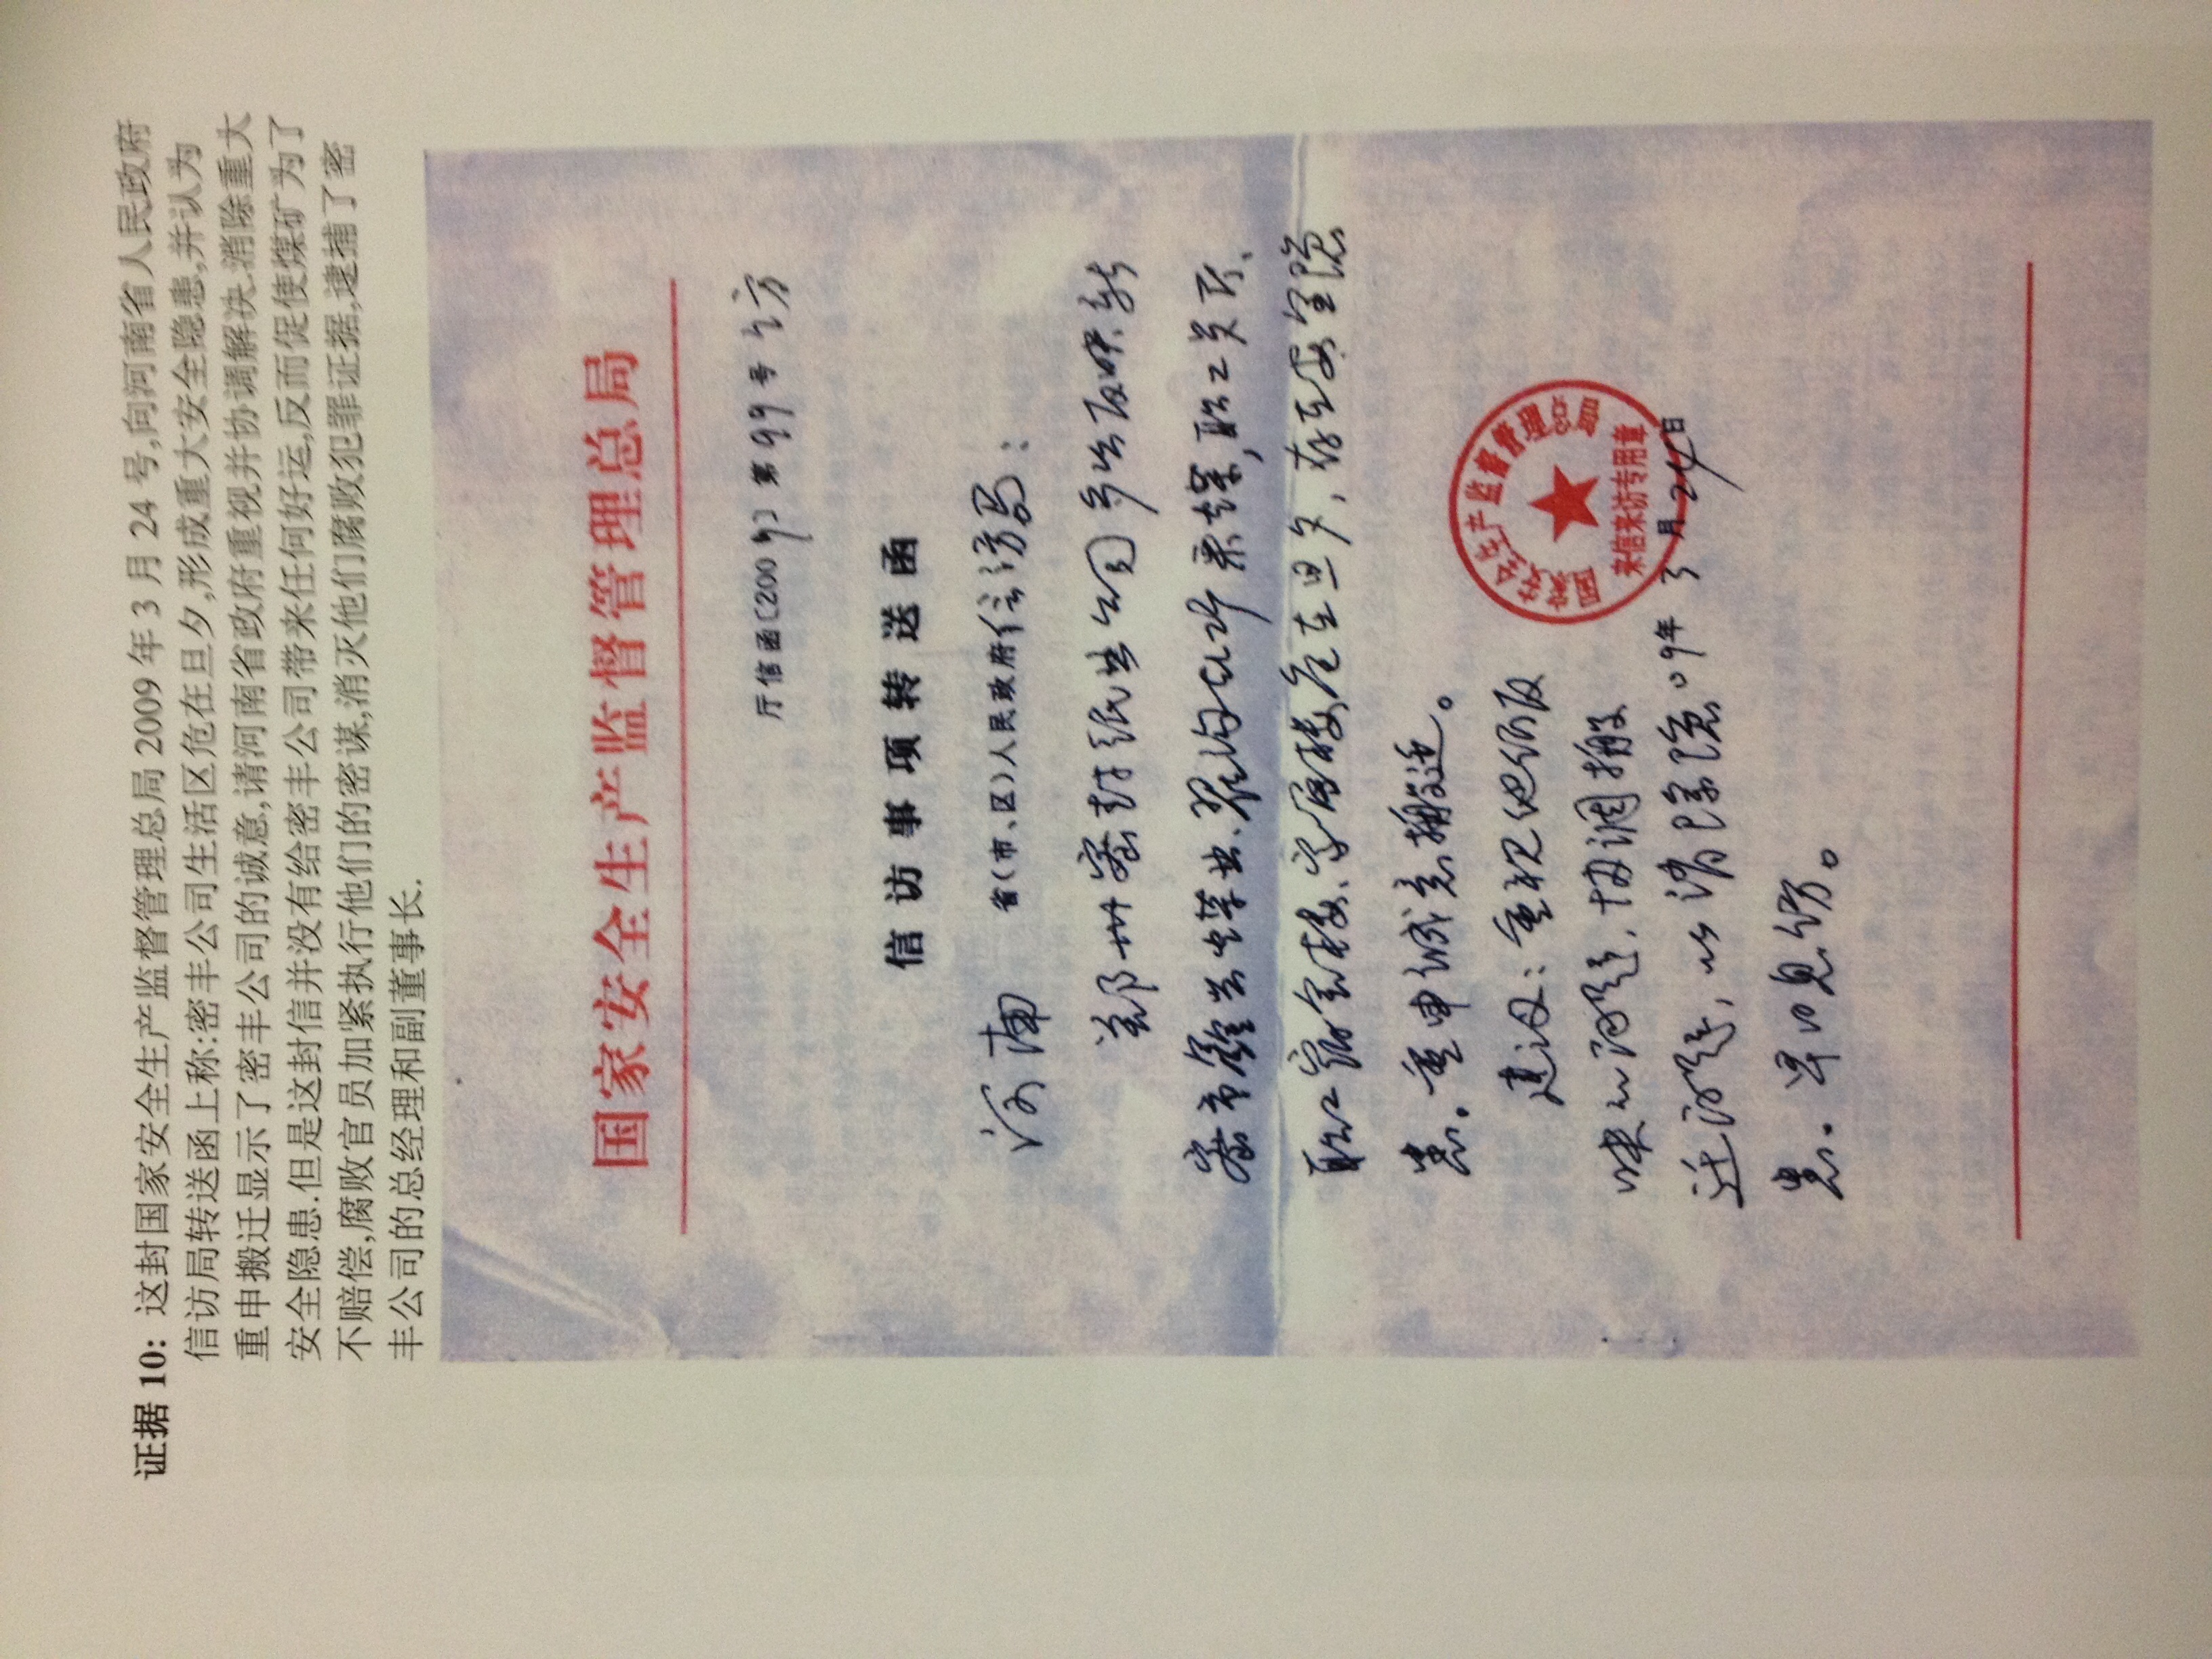 证据 10: 这封国家安全生产监督管理总局 2009 年 3 月 24 号,向河南省人民政府
信访局转送函上称:密丰公司生活区危在旦夕,形成重大安全隐患,并认为
重申搬迁显示了密丰公司的诚意,请河南省政府重视并协调解决,消除重大
安全隐患.但是这封信并没有给密丰公司带来任何好运,反而促使煤矿为了
不赔偿,腐败官员加紧执行他们的密谋,消灭他们腐败犯罪证据,逮捕了密
丰公司的总经理和副董事长.
国家安全生产监督管理总局
厅信函〔2009〕第99号
信访事项转送函
河南 省(市、区)人民政府信访局:
郑州密丰纸业公司 反映新
密市 煤业、 沟 采煤,职工
职工宿舍楼、家属楼危在旦夕,存在安全隐
患。重申诚意搬迁。
建议:重视他们反
映的问题,协调搬
迁问题,以消除隐
患。早日息访。
国家安全生产监督管理总局
来信来访专用章
09年 3 月 24 日